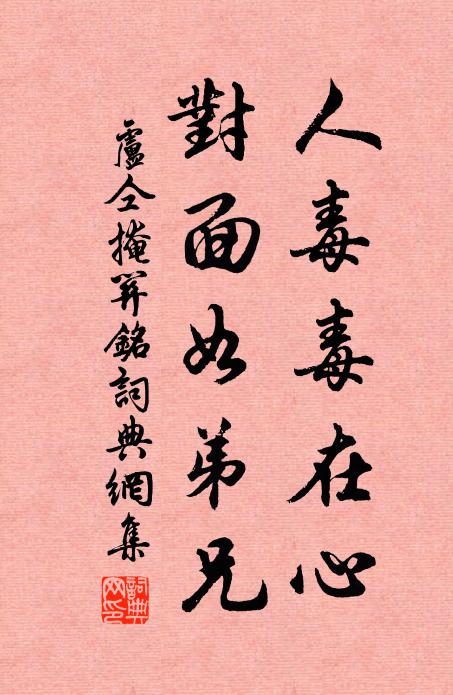 人毒毒在心
對面如弟兄
盧仝掩關銘詞典網集
詞典网印